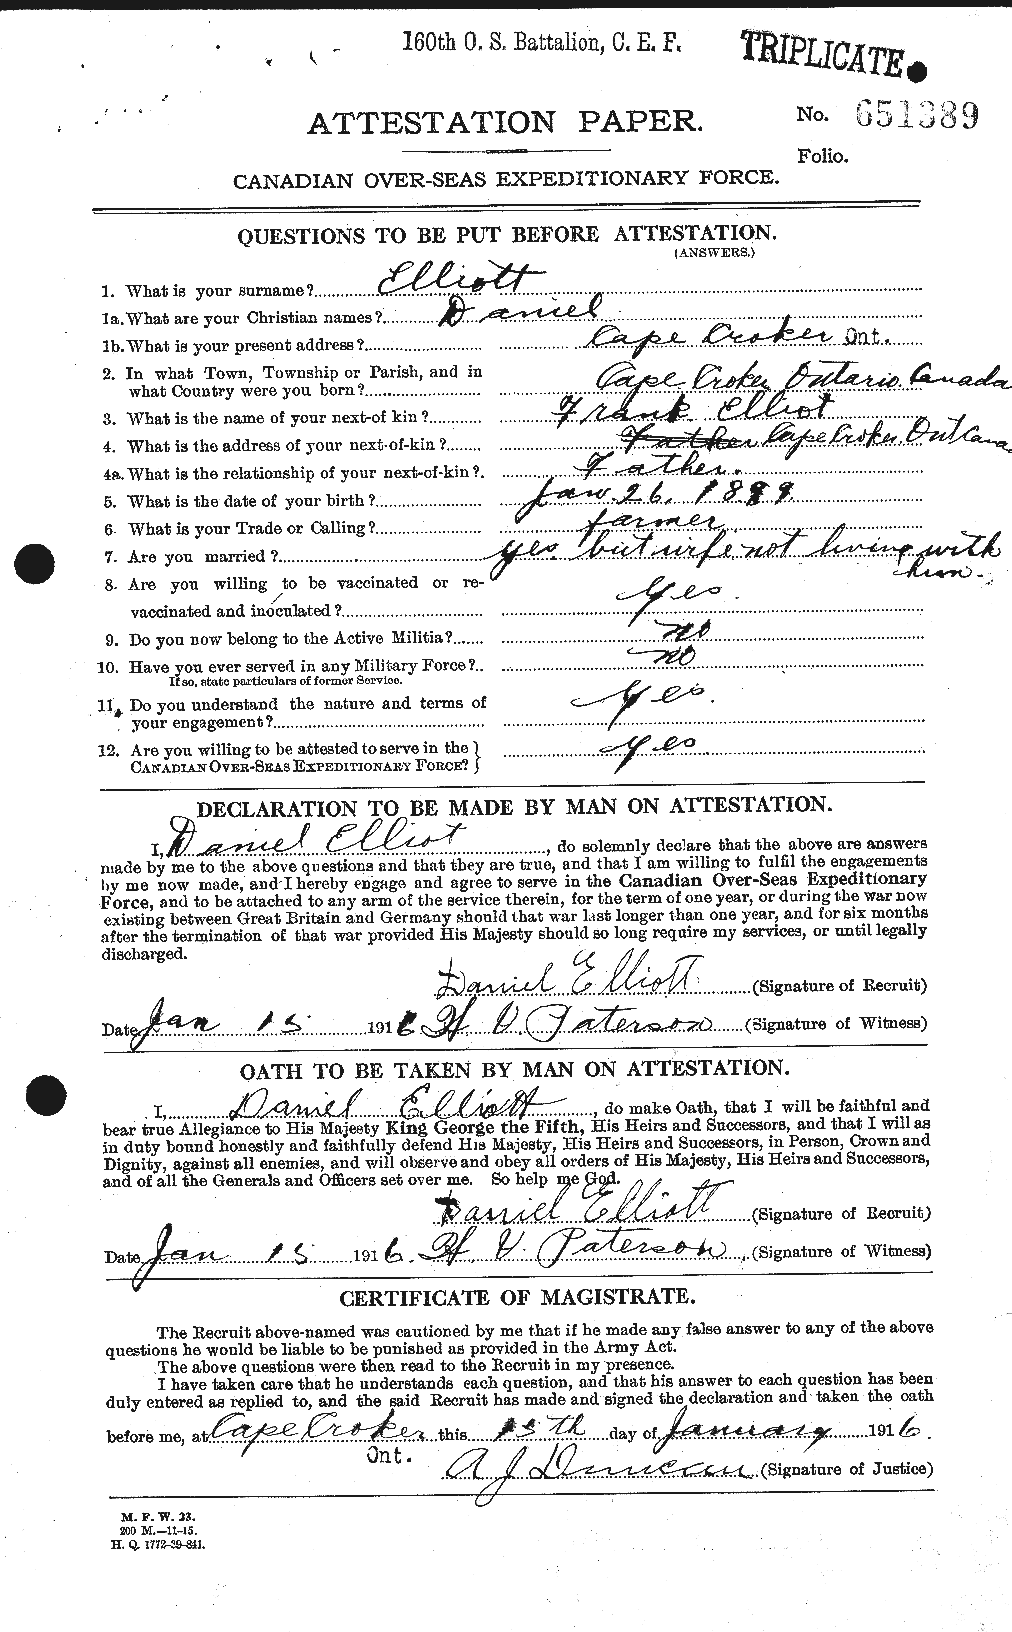 160th O. S. Battalion, C. E. F.
TRIPLICATE
ATTESTATION PAPER.
No. 651389
Folio.
CANADIAN OVER-SEAS EXPEDITIONARY FORCE.
QUESTIONS TO BE PUT BEFORE ATTESTATION.
(ANSWERS.)
1. What is your surname? Elliott
1a. What are your Christian names? Daniel
1b. What is your present address? Cape Croker Ont.
2. In what Town, Township or Parish, and in
what Country were you born? Cape Croker Ontario Canada
3. What is the name of your next-of kin? Frank Elliot
4. What is the address of your next-of-kin? Father Cape Croker Ont Cana
4a. What is the relationship of your next-of-kin? Father.
5. What is the date of your birth? Jan. 26. 1889
6. What is your Trade or Calling? farmer
7. Are you married? yes but wife not living with
him.
8. Are you willing to be vaccinated or re-
vaccinated and inoculated? Yes.
9. Do you now belong to the Active Militia? no
10. Have you ever served in any Military Force? no
If so, state particulars of former Service.
11. Do you understand the nature and terms of
your engagement? Yes.
12. Are you willing to be attested to serve in the
CANADIAN OVER-SEAS EXPEDITIONARY FORCE? } Yes
DECLARATION TO BE MADE BY MAN ON ATTESTATION.
I, Daniel Elliot, do solemnly declare that the above are answers
made by me to the above questions and that they are true, and that I am willing to fulfil the engagements
by me now made, and I hereby engage and agree to serve in the Canadian Over-Seas Expeditionary
Force, and to be attached to any arm of the service therein, for the term of one year, or during the war now
existing between Great Britain and Germany should that war last longer than one year, and for six months
after the termination of that war provided His Majesty should so long require my services, or until legally
discharged.
Daniel Elliott (Signature of Recruit)
Date Jan 15 1916 H V Paterson (Signature of Witness)
OATH TO BE TAKEN BY MAN ON ATTESTATION.
I, Daniel Elliott, do make Oath, that I will be faithful and
bear true Allegiance to His Majesty King George the Fifth, His Heirs and Successors, and that I will as
in duty bound honestly and faithfully defend His Majesty, His Heirs and Successors, in Person, Crown and
Dignity, against all enemies, and will observe and obey all orders of His Majesty, His Heirs and Successors,
and of all the Generals and Officers set over me. So help me God.
Daniel Elliott (Signature of Recruit)
Date Jan 15 1916. H V. Paterson (Signature of Witness)
CERTIFICATE OF MAGISTRATE.
The Recruit above-named was cautioned by me that if he made any false answer to any of the above
questions he would be liable to be punished as provided in the Army Act.
The above questions were then read to the Recruit in my presence.
I have taken care that he understands each question, and that his answer to each question has been
duly entered as replied to, and the said Recruit has made and signed the declaration and taken the oath
before me, at Cape Croker this 15th day of January 1916.
Ont.
A J Duncan (Signature of Justice)
M. F. W. 23.
200 M.—11-15.
H. Q. 1772-39-841.